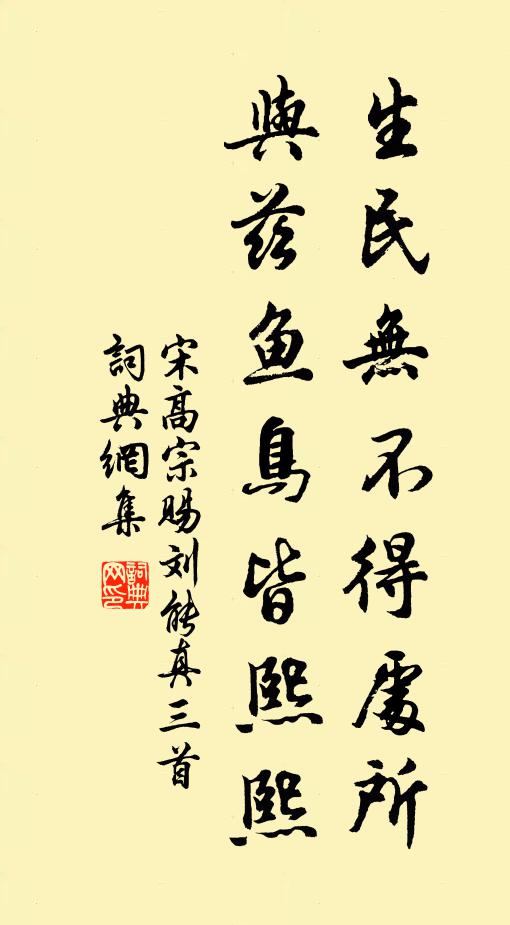 生民無不得處所
與茲鱼鳥皆熙熙
宋高宗賜刘能真三首
詞典網集
詞典网印